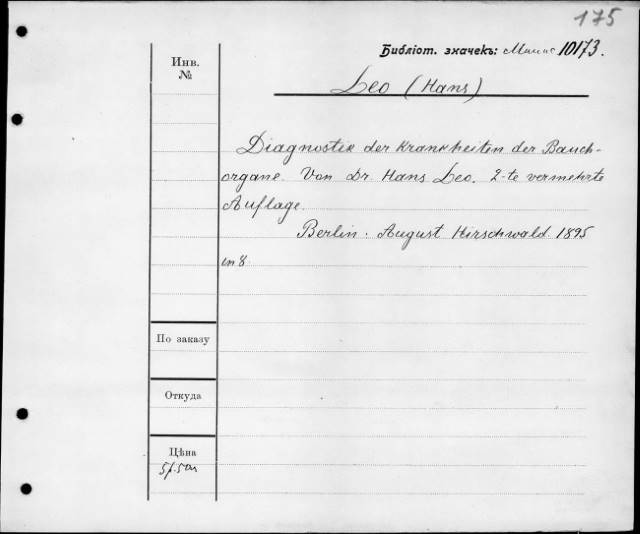 175
Библіот. значекъ: 10173.
Инв.
№
Leo (Hans)
Diagnostik der Krankheiten der Bauch-
organe. Von Dr. Hans Leo. 2-te vermehrte
Auflage.
Berlin. August Hirschwald. 1895
in 8
По заказу
Откуда
Цѣна